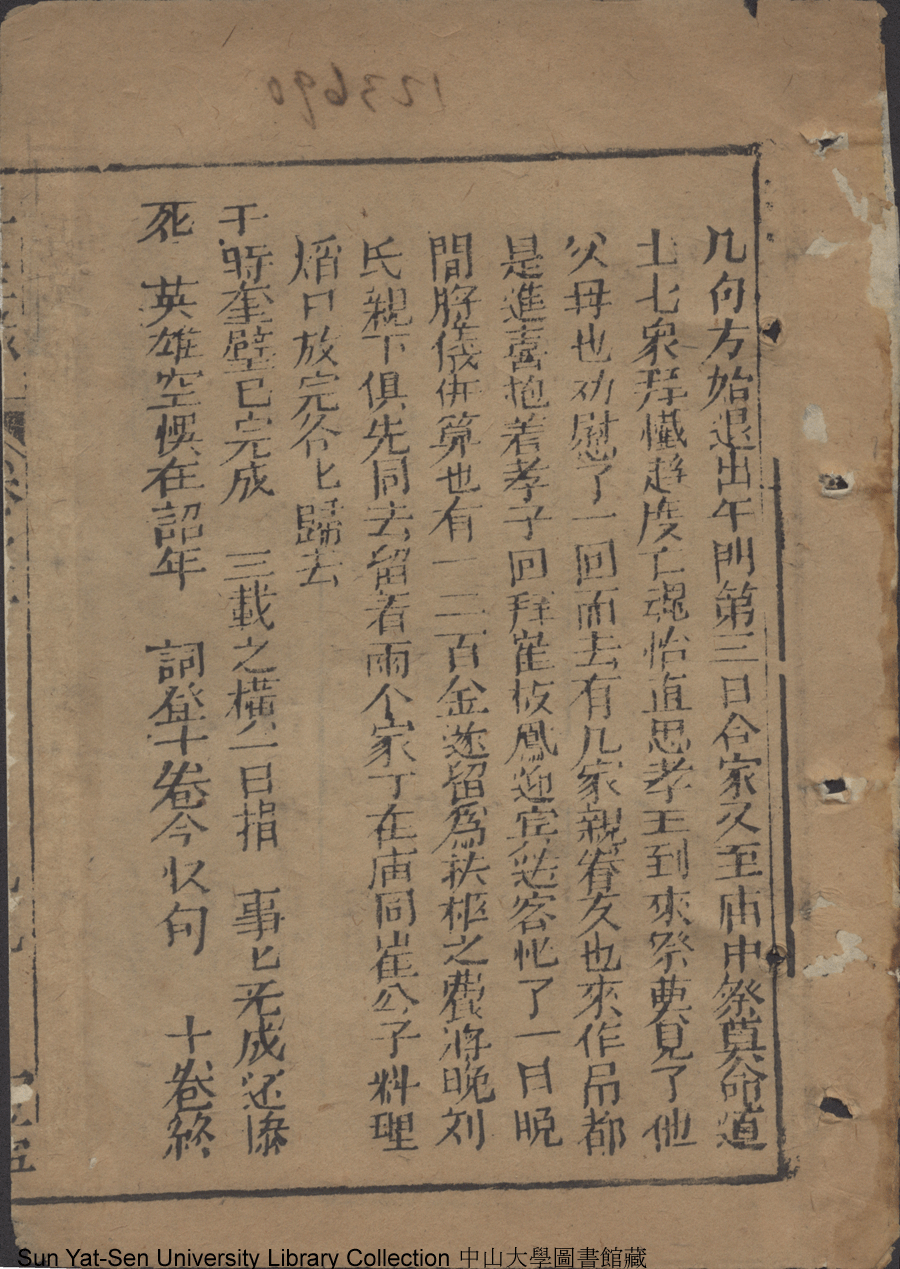 几句方始退出午門第三日合家又至庙中祭奠命道
士七衆拜懺超度亡魂恰直思孝王到來祭奠見了他
父母也劝慰了一回而去有几家親眷友也來作吊都
是進喜抱着孝子回拜崔板鳳迎宾送客忙了一日晚
間將儀併算也有一二百金遂留為扶柩之費將晚刘
氏親下俱先同去留着兩个家丁在庙同崔公子料理
焰口放完各匕歸去
于時奎壁已完成　三載之橫一日捐　事匕无成还慘
死　英雄空悞在韶年　詞登十卷今收句　十卷終
123690
Sun Yat-Sen University Library Collection 中山大學圖書館藏